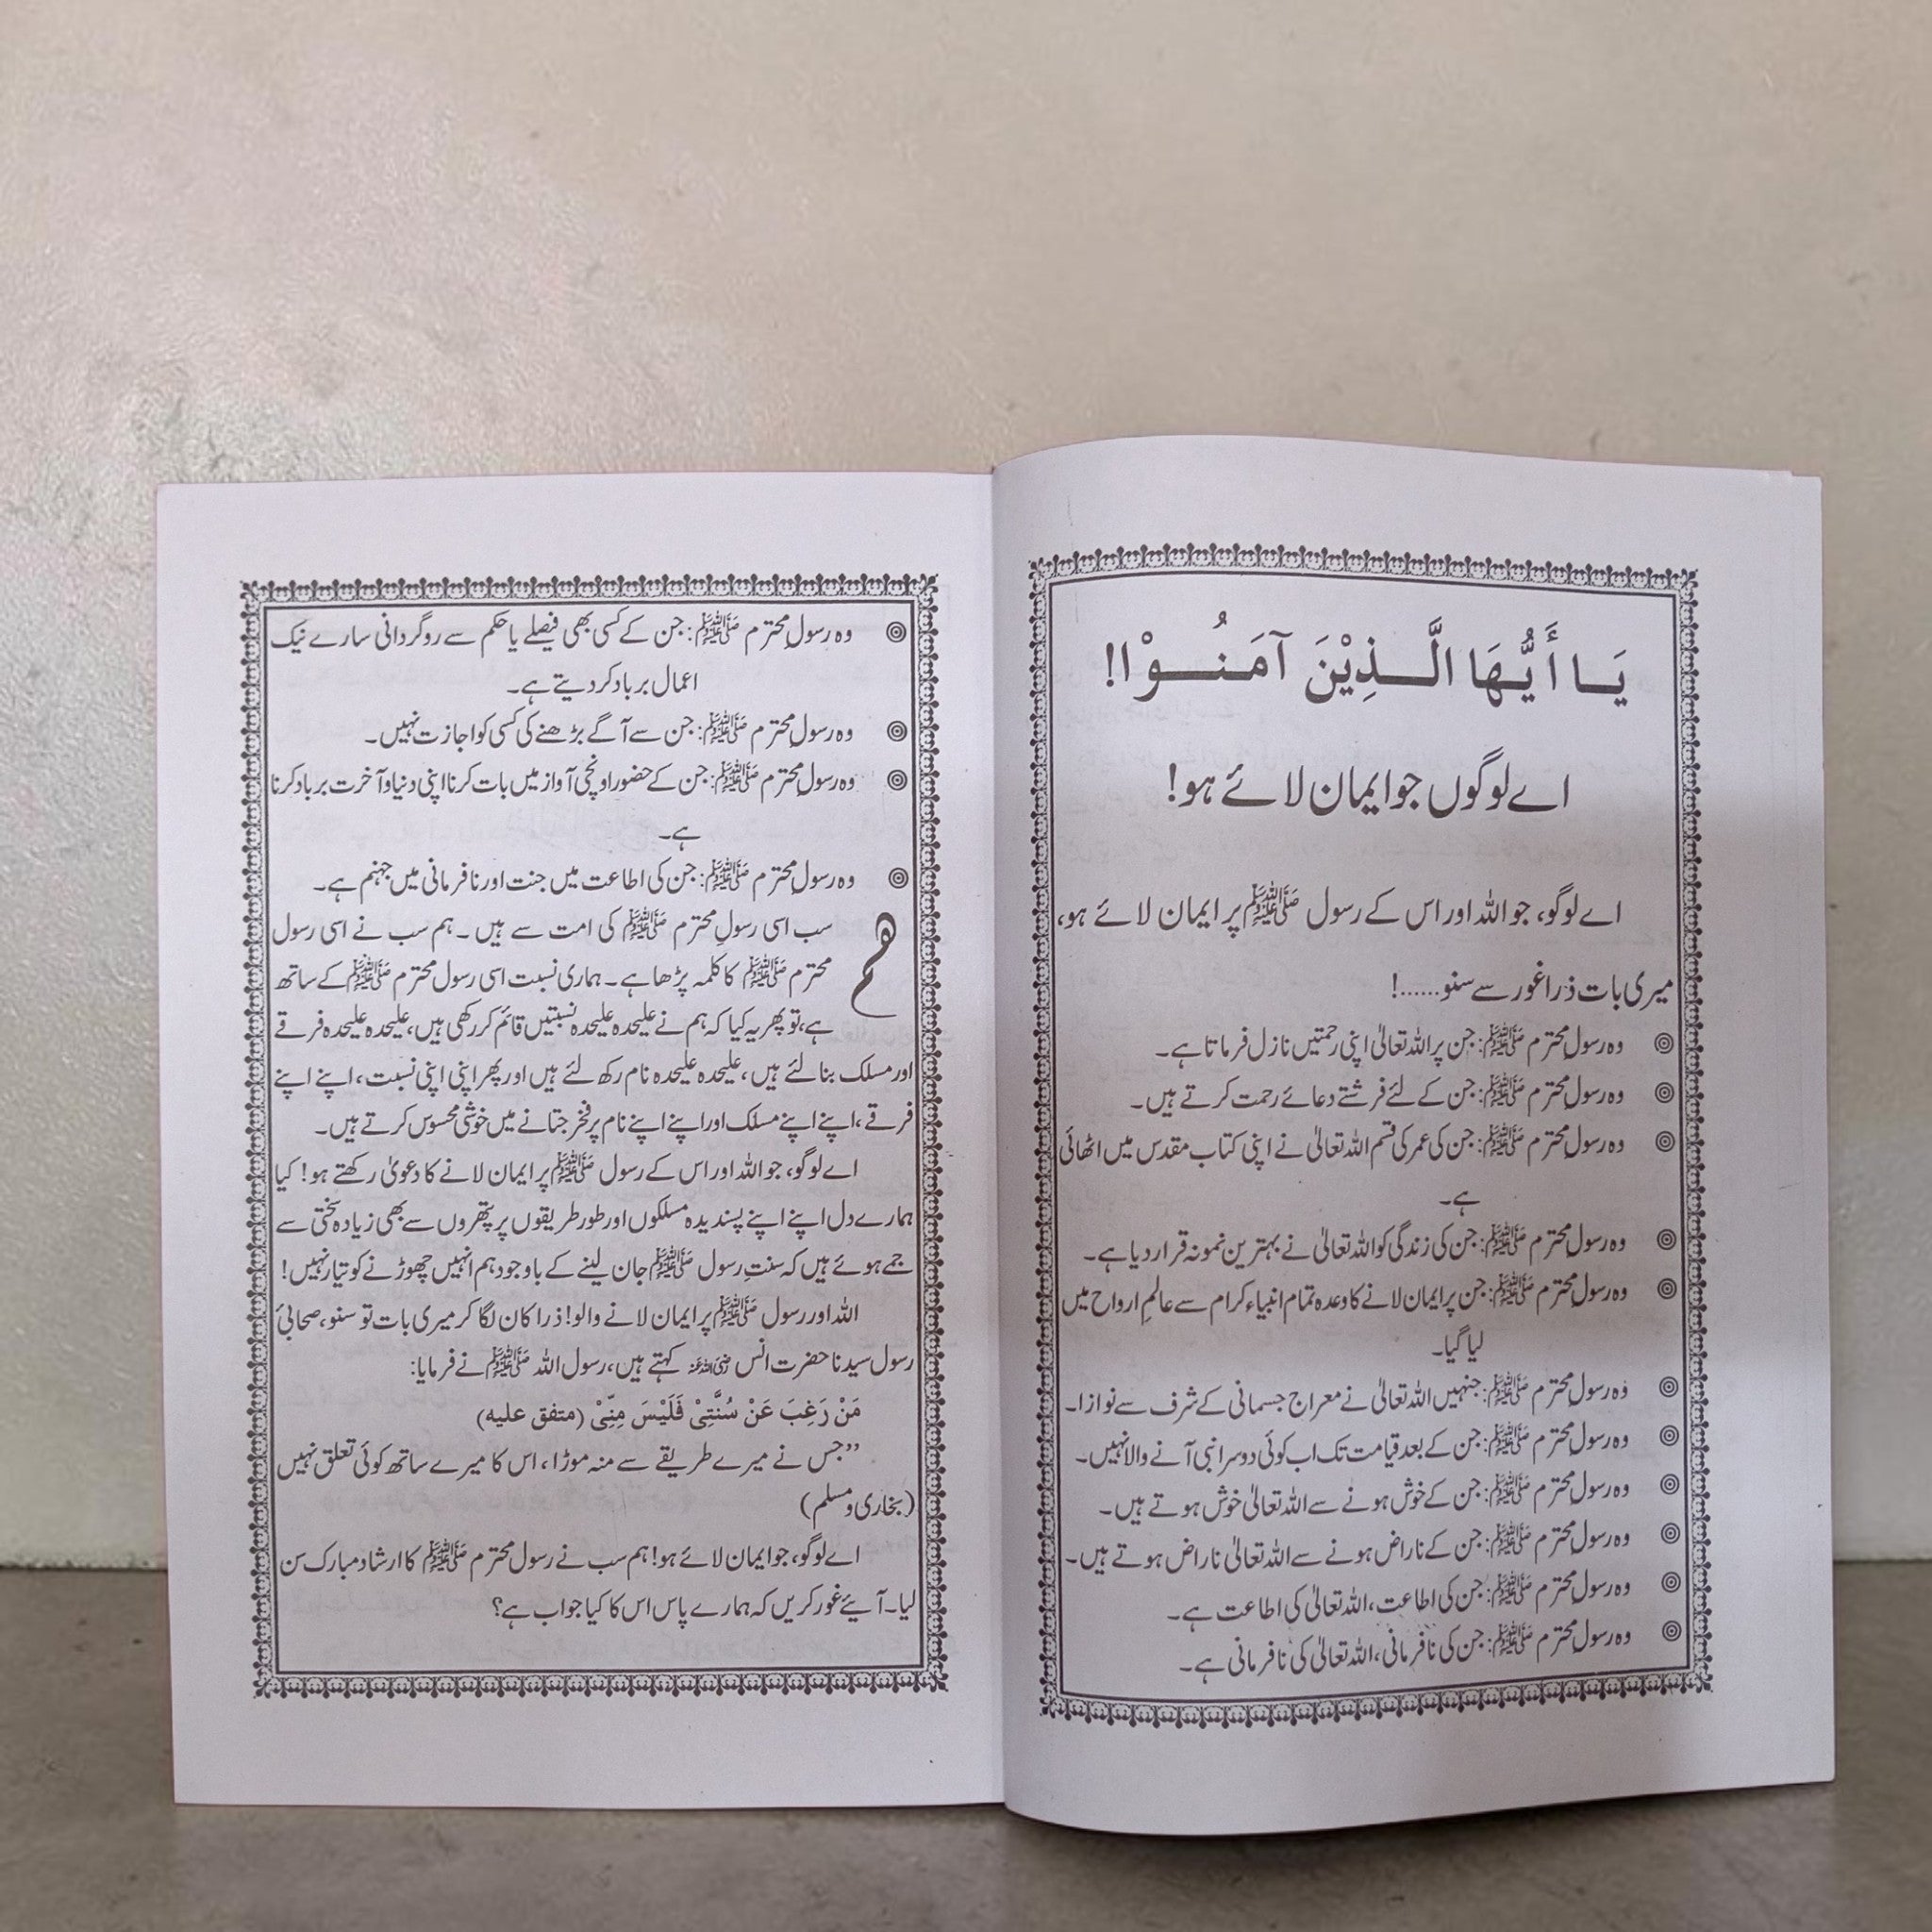 يَا أَيُّهَا الَّذِيْنَ آمَنُوْا!
اے لوگوں جو ایمان لائے ہو!
اے لوگو، جو اللہ اور اس کے رسول ﷺ پر ایمان لائے ہو،
میری بات ذرا غور سے سنو......!
◎ وہ رسولِ محترم ﷺ: جن پر اللہ تعالیٰ اپنی رحمتیں نازل فرماتا ہے۔
◎ وہ رسولِ محترم ﷺ: جن کے لئے فرشتے دعائے رحمت کرتے ہیں۔
◎ وہ رسولِ محترم ﷺ: جن کی عمر کی قسم اللہ تعالیٰ نے اپنی کتاب مقدس میں اٹھائی
ہے۔
◎ وہ رسولِ محترم ﷺ: جن کی زندگی کو اللہ تعالیٰ نے بہترین نمونہ قرار دیا ہے۔
◎ وہ رسولِ محترم ﷺ: جن پر ایمان لانے کا وعدہ تمام انبیاء کرام سے عالمِ ارواح میں
لیا گیا۔
◎ وہ رسولِ محترم ﷺ: جنہیں اللہ تعالیٰ نے معراج جسمانی کے شرف سے نوازا۔
◎ وہ رسولِ محترم ﷺ: جن کے بعد قیامت تک اب کوئی دوسرا نبی آنے والا نہیں۔
◎ وہ رسولِ محترم ﷺ: جن کے خوش ہونے سے اللہ تعالیٰ خوش ہوتے ہیں۔
◎ وہ رسولِ محترم ﷺ: جن کے ناراض ہونے سے اللہ تعالیٰ ناراض ہوتے ہیں۔
◎ وہ رسولِ محترم ﷺ: جن کی اطاعت، اللہ تعالیٰ کی اطاعت ہے۔
◎ وہ رسولِ محترم ﷺ: جن کی نافرمانی، اللہ تعالیٰ کی نافرمانی ہے۔
◎ وہ رسولِ محترم ﷺ: جن کے کسی بھی فیصلے یا حکم سے روگردانی سارے نیک
اعمال برباد کر دیتے ہے۔
◎ وہ رسولِ محترم ﷺ: جن سے آگے بڑھنے کی کسی کو اجازت نہیں۔
◎ وہ رسولِ محترم ﷺ: جن کے حضور اونچی آواز میں بات کرنا اپنی دنیا و آخرت برباد کرنا
ہے۔
◎ وہ رسولِ محترم ﷺ: جن کی اطاعت میں جنت اور نافرمانی میں جہنم ہے۔
ہم سب اسی رسولِ محترم ﷺ کی امت سے ہیں۔ ہم سب نے اسی رسول
محترم ﷺ کا کلمہ پڑھا ہے۔ ہماری نسبت اسی رسول محترم ﷺ کے ساتھ
ہے، تو پھر یہ کیا کہ ہم نے علیحدہ علیحدہ نسبتیں قائم کر رکھی ہیں، علیحدہ علیحدہ فرقے
اور مسلک بنالئے ہیں، علیحدہ علیحدہ نام رکھ لئے ہیں اور پھر اپنی اپنی نسبت، اپنے اپنے
فرقے، اپنے اپنے مسلک اور اپنے اپنے نام پر فخر جتانے میں خوشی محسوس کرتے ہیں۔
اے لوگو، جو اللہ اور اس کے رسول ﷺ پر ایمان لانے کا دعویٰ رکھتے ہو! کیا
ہمارے دل اپنے اپنے پسندیدہ مسلکوں اور طور طریقوں پر پتھروں سے بھی زیادہ سختی سے
جمے ہوئے ہیں کہ سنتِ رسول ﷺ جان لینے کے باوجود ہم انہیں چھوڑنے کو تیار نہیں!
اللہ اور رسول ﷺ پر ایمان لانے والو! ذرا کان لگا کر میری بات تو سنو، صحابیٔ
رسول سیدنا حضرت انس رضی اللہ عنہ کہتے ہیں، رسول اللہ ﷺ نے فرمایا:
مَنْ رَغِبَ عَنْ سُنَّتِيْ فَلَيْسَ مِنِّيْ (متفق علیہ)
”جس نے میرے طریقے سے منہ موڑا، اس کا میرے ساتھ کوئی تعلق نہیں
(بخاری و مسلم)
اے لوگو، جو ایمان لائے ہو! ہم سب نے رسول محترم ﷺ کا ارشاد مبارک سن
لیا۔ آیئے غور کریں کہ ہمارے پاس اس کا کیا جواب ہے؟